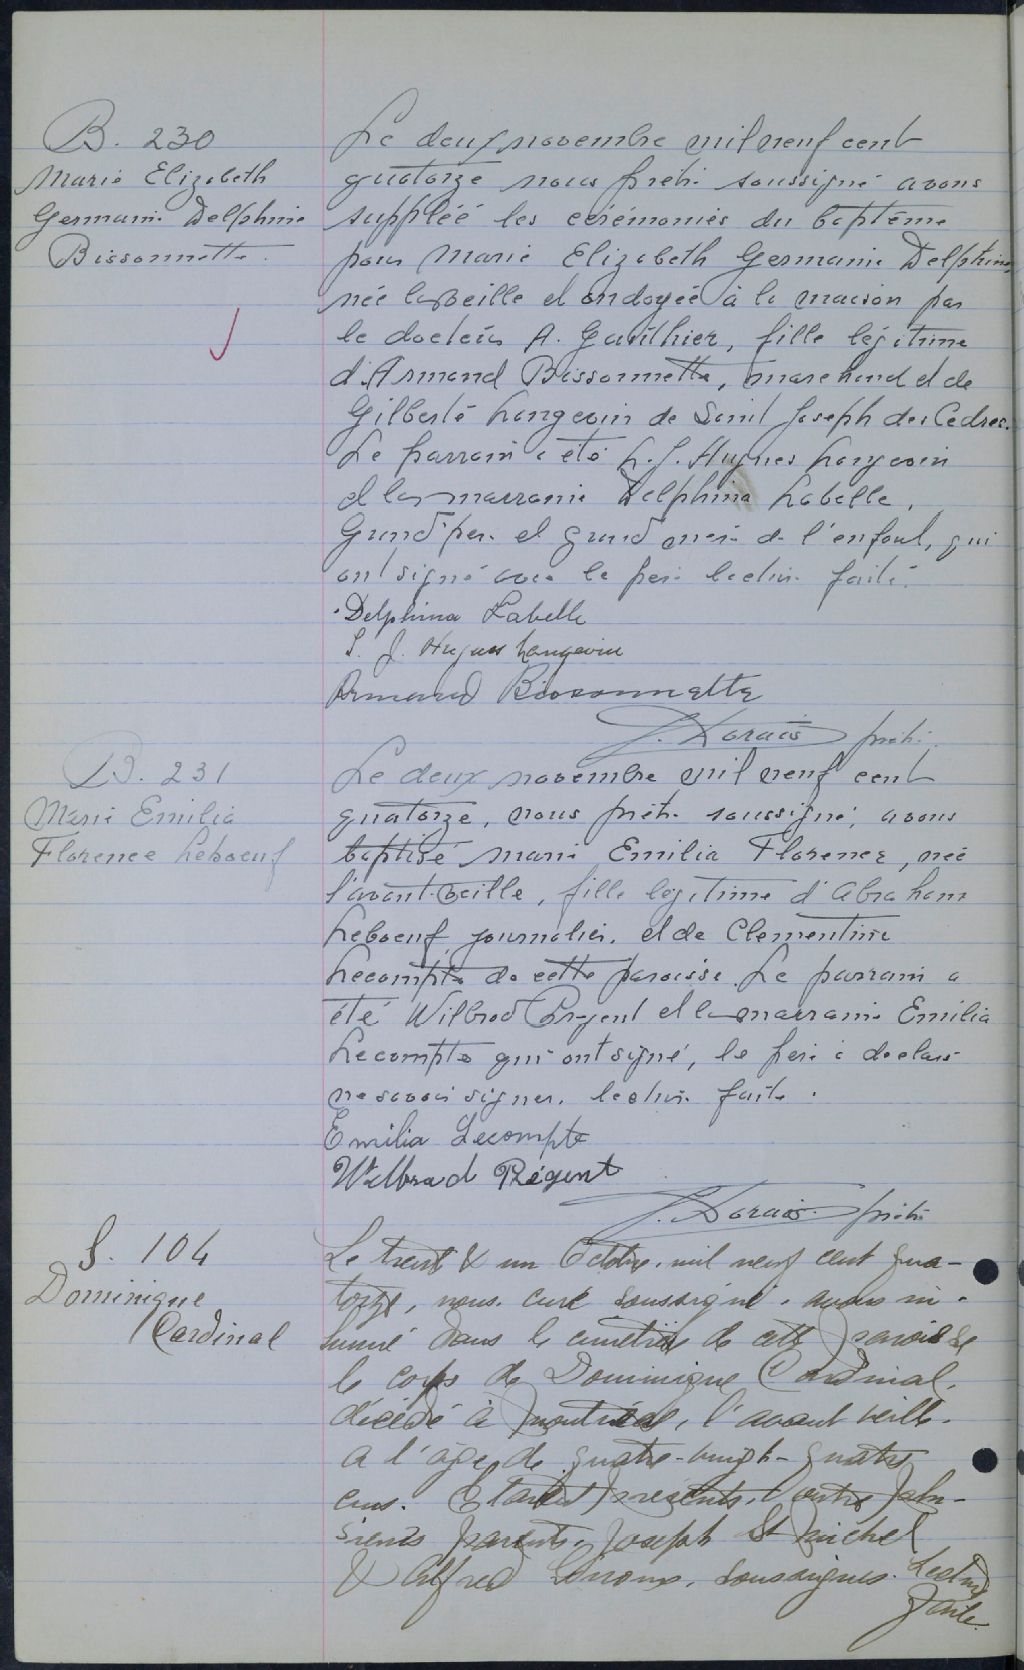 B. 230
Marie Elizabeth
Germaine Delphine
Bissonnette.
Le deux novembre mil neuf cent
quatorze nous prêtre soussigné avons
suppléé les cérémonies du baptême
pour Marie Elizabeth Germaine Delphine,
née la veille et ondoyée à la maison par
le docteur A. Gauthier, fille légitime
d'Armand Bissonnette, marchand et de
Gilberte Langevin de Saint Joseph des Cedres.
Le parrain a été L. J. Hugues Langevin
et la marraine Delphina Labelle,
Grand'père et grand'mère de l'enfant, qui
ont signé avec le père lecture faite.
Delphina Labelle
L. J. Hugues Langevin
Armand Bissonnette
J. prêtre
B. 231
Marie Emilia
Florence Leboeuf
Le deux novembre mil neuf cent
quatorze, nous prêtre soussigné, avons
baptisé Marie Emilia Florence, née
l'avant-veille, fille légitime d'Abraham
Leboeuf journalier, et de Clementine
Lecompte de cette paroisse. Le parrain a
été Wilbrod et la marraine Emilia
Lecompte qui ont signé, le père a déclaré
ne savoir signer. lecture faite.
Emilia Lecompte
Wilbrod Régent
J. prêtre
S. 104
Dominique
Cardinal
Le trente & un Octobre, mil neuf cent qua-
torze, nous, curé soussigné, avons in-
humé dans le cimetière de cette paroisse
le corps de Dominique Cardinal,
décédé à Montréal, l'avant veille,
a l'âge de quatre-vingt-quatre
ans. Etaient présents, outre plu-
sieurs parents, Joseph St Michel
& Alfred soussignés. Lecture
faite.